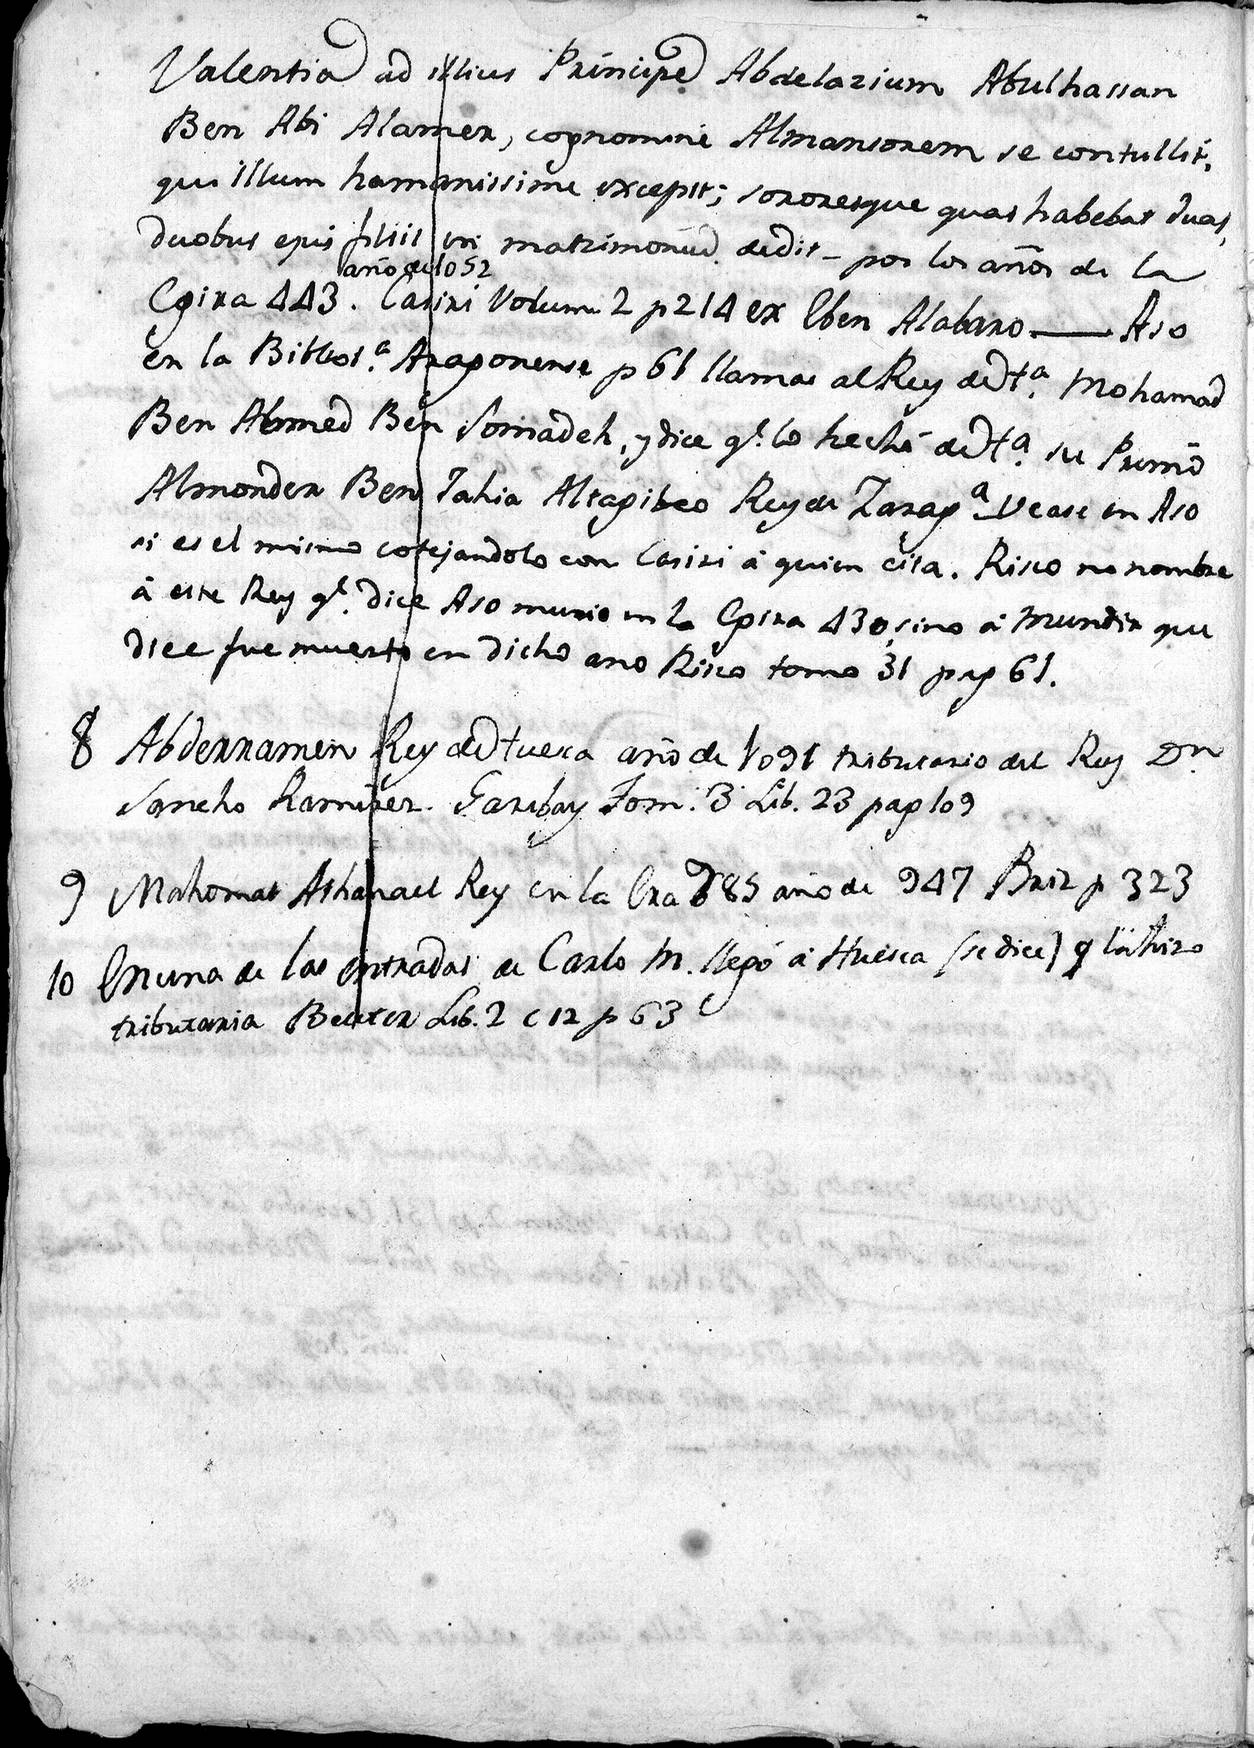 Valentia ad illius Principe Abdelazium Abulhassan
Ben Abi Alamer, cognomine Almansorem se contullit,
qui illum humanissime excepit; sororesque quas habebat duas,
duobus ejus filiis in matrimoniũ dedit – por los años de la
año de 1052
Egira 443. Casiri Volum. 2 p 214 ex Eben Alabaro —— Aso
en la Bibliot.ª Aragonense p 61 llama al Rey de Hª. Mohamad
Ben Ahmed Ben Somadeh, y dice q.e lo hechó de Hª. su Primo
Almonder Ben Jahia Altagibeo Rey de Zarag.ª Vease en Aso
si es el mismo cotejandolo con Casiri á quien cita. Risco no nombre
á este Rey q.e dice Aso murio en la Egira 430, sino á Mundir que
dice fue muerto en dicho ano Risco tomo 31 pag 61.
8 Abderramen Rey de Huesca año de 1091 tributario del Rey Dn.
Sancho Ramirez. Garibay Tom. 3 Lib. 23 pag 109
9 Mahomat Athanael Rey en la Era 985 año de 947 Briz p 323
10 En una de las entradas de Carlo M. llegó á Huesca (se dice) q la hizo
tributaria Beuter Lib. 2 c 12 p 63